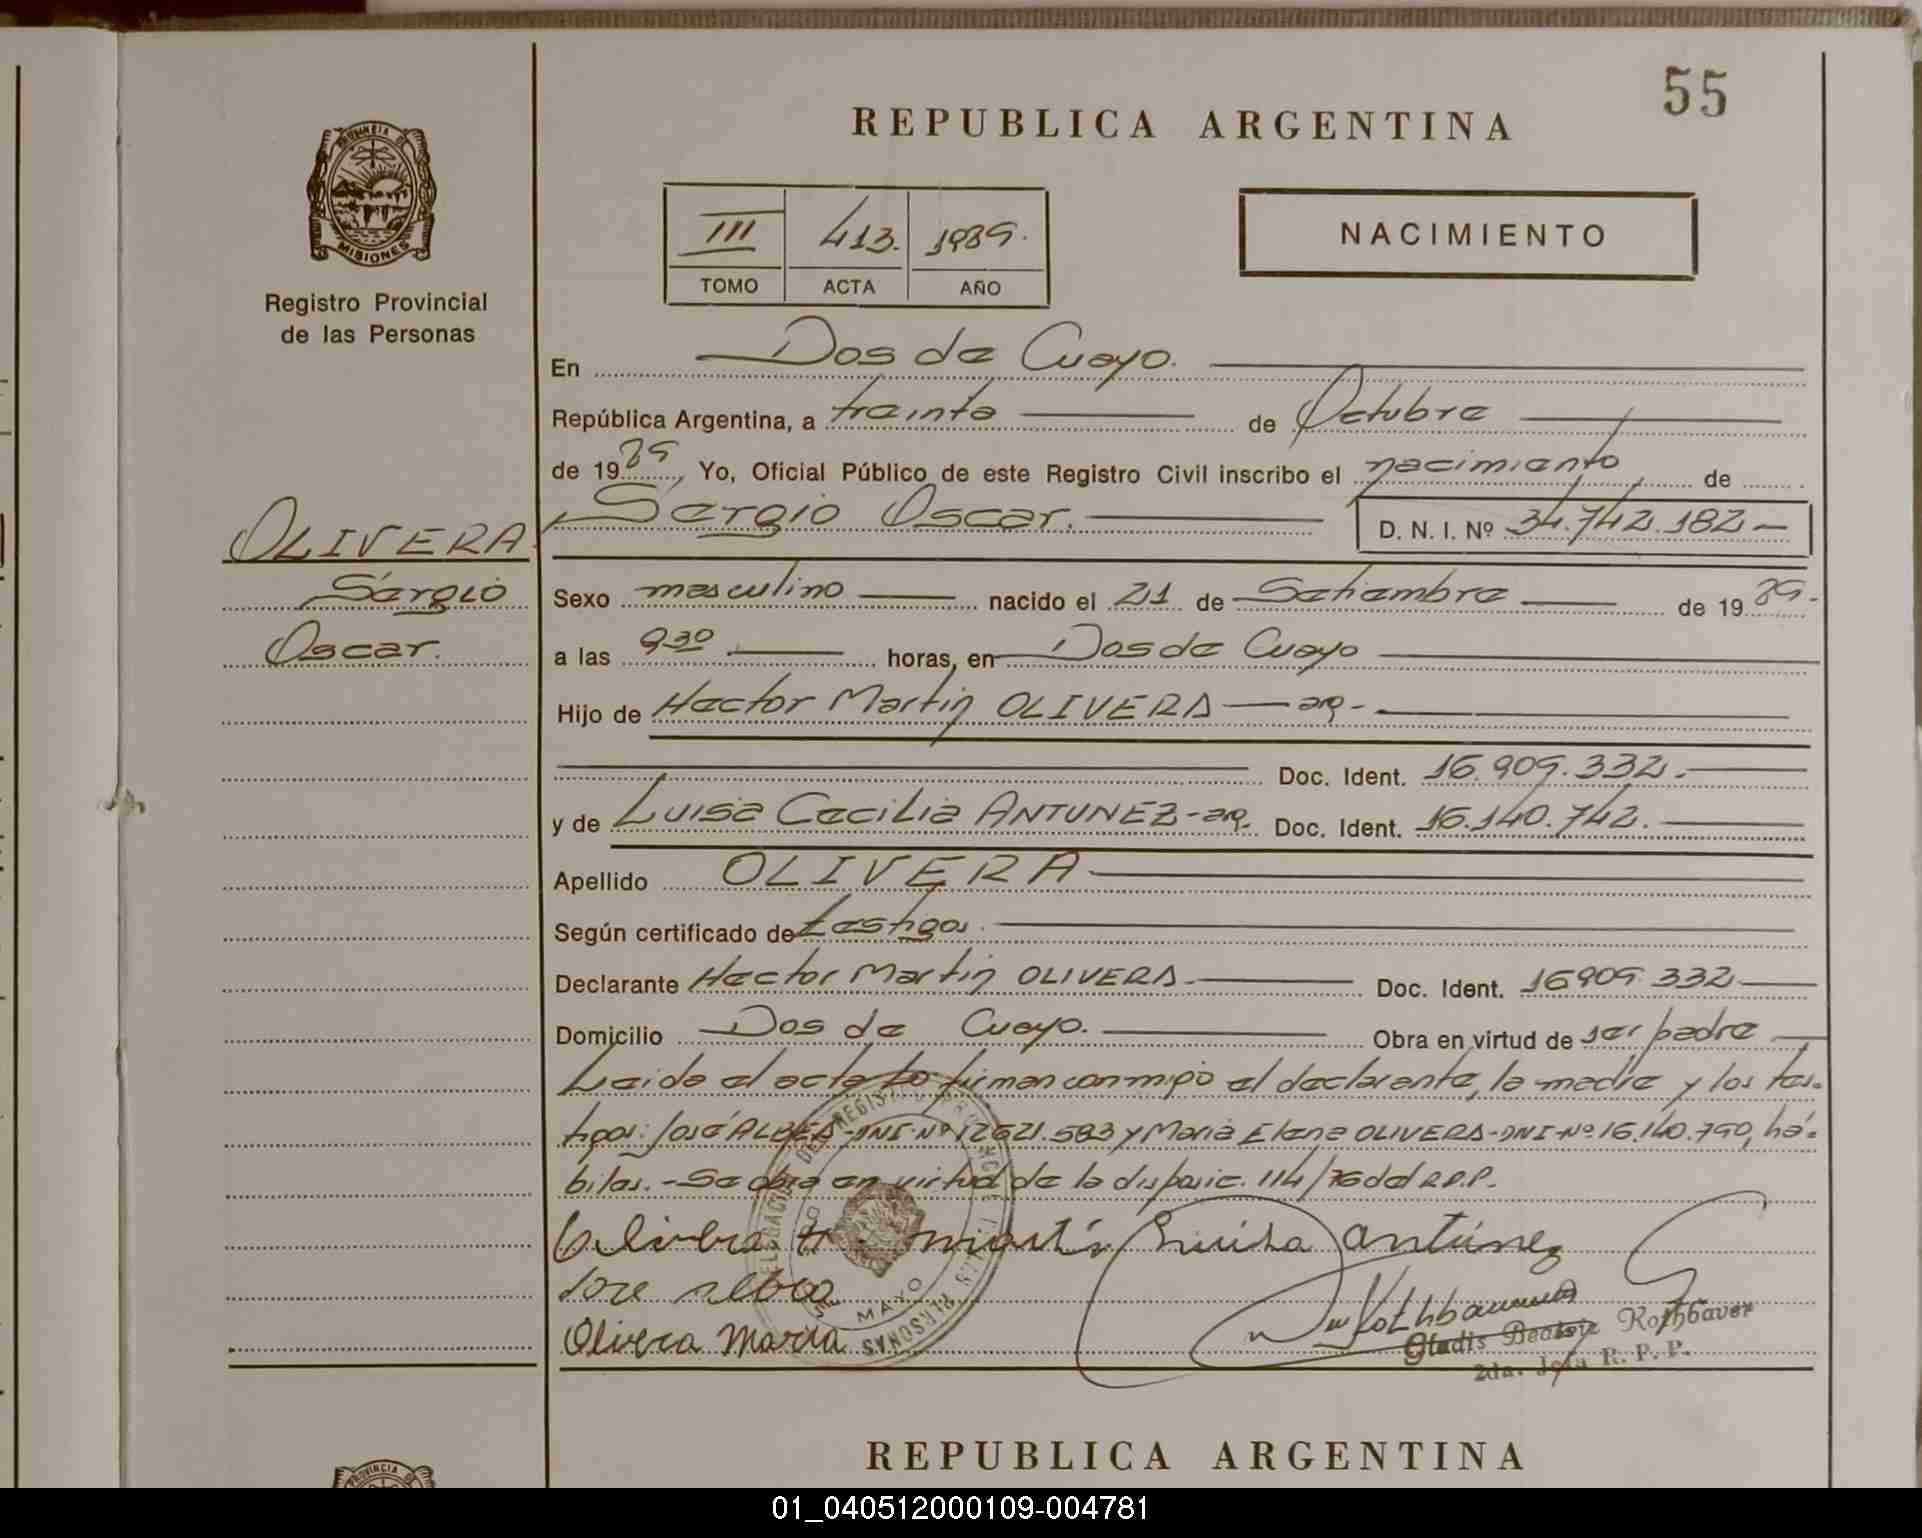 55
REPUBLICA ARGENTINA
PROVINCIA DE
MISIONES
Registro Provincial
de las Personas
III 413. 1989.
TOMO ACTA AÑO
NACIMIENTO
En Dos de Mayo.
República Argentina, a treinta de Octubre
de 1989, Yo, Oficial Público de este Registro Civil inscribo el nacimiento de
OLIVERA
Sergio
Oscar.
Sergio Oscar. D. N. I. Nº 34.742.182
Sexo masculino nacido el 21 de Setiembre de 1989.
a las 9,30 horas, en Dos de Mayo
Hijo de Hector Martin OLIVERA - arg -
Doc. Ident. 16.909.332.
y de Luisa Cecilia ANTUNEZ - arg. Doc. Ident. 16.140.742.
Apellido OLIVERA
Según certificado de testigos.
Declarante Hector Martin OLIVERA Doc. Ident. 16909.332
Domicilio Dos de Mayo. Obra en virtud de ser padre
Leida el acta la firman conmigo el declarante, la madre y los tes-
tigos: José ALBEA-DNI-Nº 12621.583 y Maria Elena OLIVERA-DNI-Nº 16.140.790, há-
biles. - Se obra en virtud de la disposic. 114/76 del R.P.P.
Olivera H. martín Luisa antúnez
Jose
Olivera Maria
MAYO
Gladis Beatriz Kothbaver
2da. Jefa R. P. P.
REPUBLICA ARGENTINA
PROVINCIA DE
01_040512000109-004781